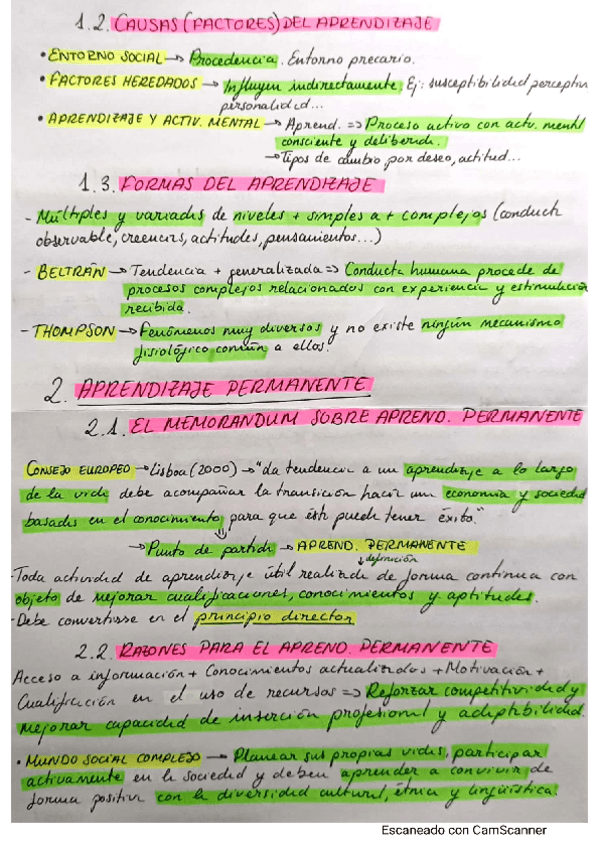 1.2. CAUSAS (FACTORES) DEL APRENDIZAJE
• ENTORNO SOCIAL → Procedencia. Entorno precario.
• FACTORES HEREDADOS → Influyen indirectamente. Ej: susceptibilidad perceptiva
personalidad...
• APRENDIZAJE Y ACTIV. MENTAL → Aprend. => Proceso activo con activ. mental
consciente y deliberada.
→ Tipos de cambio por deseo, actitud...
1.3. FORMAS DEL APRENDIZAJE
- Múltiples y variadas de niveles + simples a + complejos (conducta
observable, creencias, actitudes, pensamientos...)
- BELTRÁN → Tendencia + generalizada => Conducta humana procede de
procesos complejos relacionados con experiencia y estimulación
recibida.
- THOMPSON → Fenómenos muy diversos y no existe ningún mecanismo
fisiológico común a ellos.
2. APRENDIZAJE PERMANENTE
2.1. EL MEMORANDUM SOBRE APREND. PERMANENTE
CONSEJO EUROPEO → Lisboa (2000) → "da tendencia a un aprendizaje a lo largo
de la vida debe acompañar la transición hacia una economía y sociedad
basadas en el conocimiento para que ésta pueda tener éxito."
→ Punto de partida → APREND. PERMANENTE
↓ definición
- Toda actividad de aprendizaje útil realizada de forma continua con
objeto de mejorar cualificaciones, conocimientos y aptitudes.
- Debe convertirse en el principio director
2.2. RAZONES PARA EL APREND. PERMANENTE
Acceso a información + Conocimientos actualizados + Motivación +
Cualificación en el uso de recursos => Reforzar competitividad y
mejorar capacidad de inserción profesional y adaptabilidad.
• MUNDO SOCIAL COMPLEJO → Planear sus propias vidas, participar
activamente en la sociedad y deben aprender a convivir de
forma positiva con la diversidad cultural, étnica y lingüística.
Escaneado con CamScanner